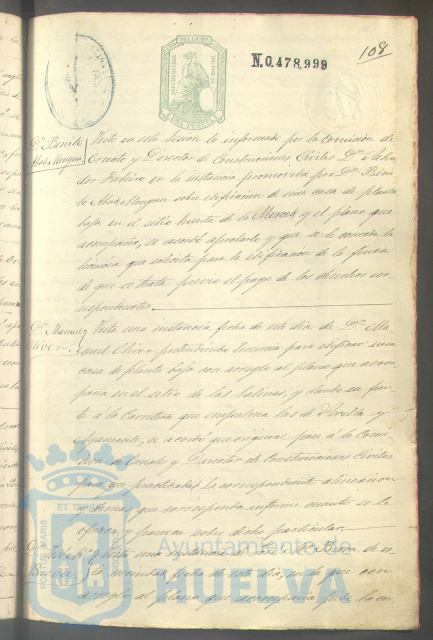 N.0.478,999
108
Dn Benito
Visto en esta sesion lo informado por la Comision de
Ornato y Director de Construcciones Civiles Dn Salva
dor en la instancia promovida por Dn Beni
to sobre edificacion de una casa de planta
baja en el sitio huerta de la Merced y el plano que
acompaña, se acordó aprobarlo y que se le conceda la
licencia que solicita para la edificacion de la finca
de que se trata previo el pago de los derechos cor
respondientes.
Dn Manuel
Oliver.
Vista una instancia fecha de este dia de Dn Ma
nuel Oliver pretendiendo licencia para edificar una
casa de planta baja con arreglo al plano que acom
paña en el sitio de las Salinas, y dando su fren
te a la Carretera que empalma las de Sevilla y
Ayamonte, se acordó que original pase á la Comi
sion de Ornato y Director de Construcciones Civiles
para que practicada la correspondiente alineacion
informe cuanto se le
ofrezca y parezca sobre dicho particular.
Vista una instancia de
vecindad fecha de este dia, en la que con
arreglo al plano que acompaña pide la
Ayuntamiento de
HUELVA
PORTUS MARIS
ET TERRAE
CUSTODIA